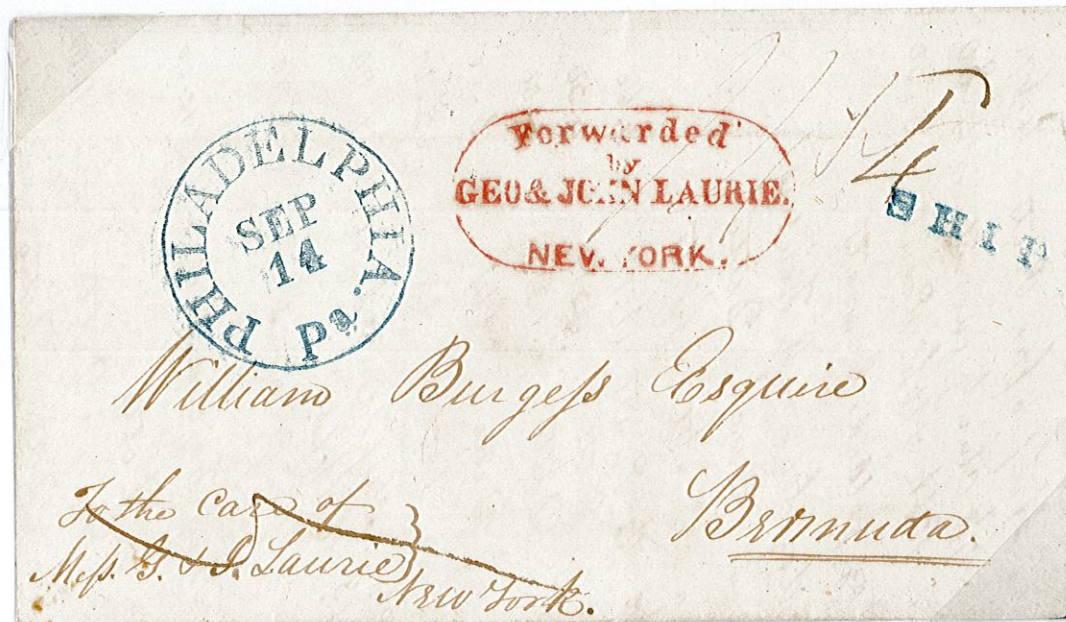 PHILADELPHIA. Pa.
SEP
14
Forwarded
by
GEO & JOHN LAURIE.
NEW YORK.
SHIP
William Burgeſs Esquire
Bermuda.
To the Care of
Meſs. G. & J. Laurie
New York.